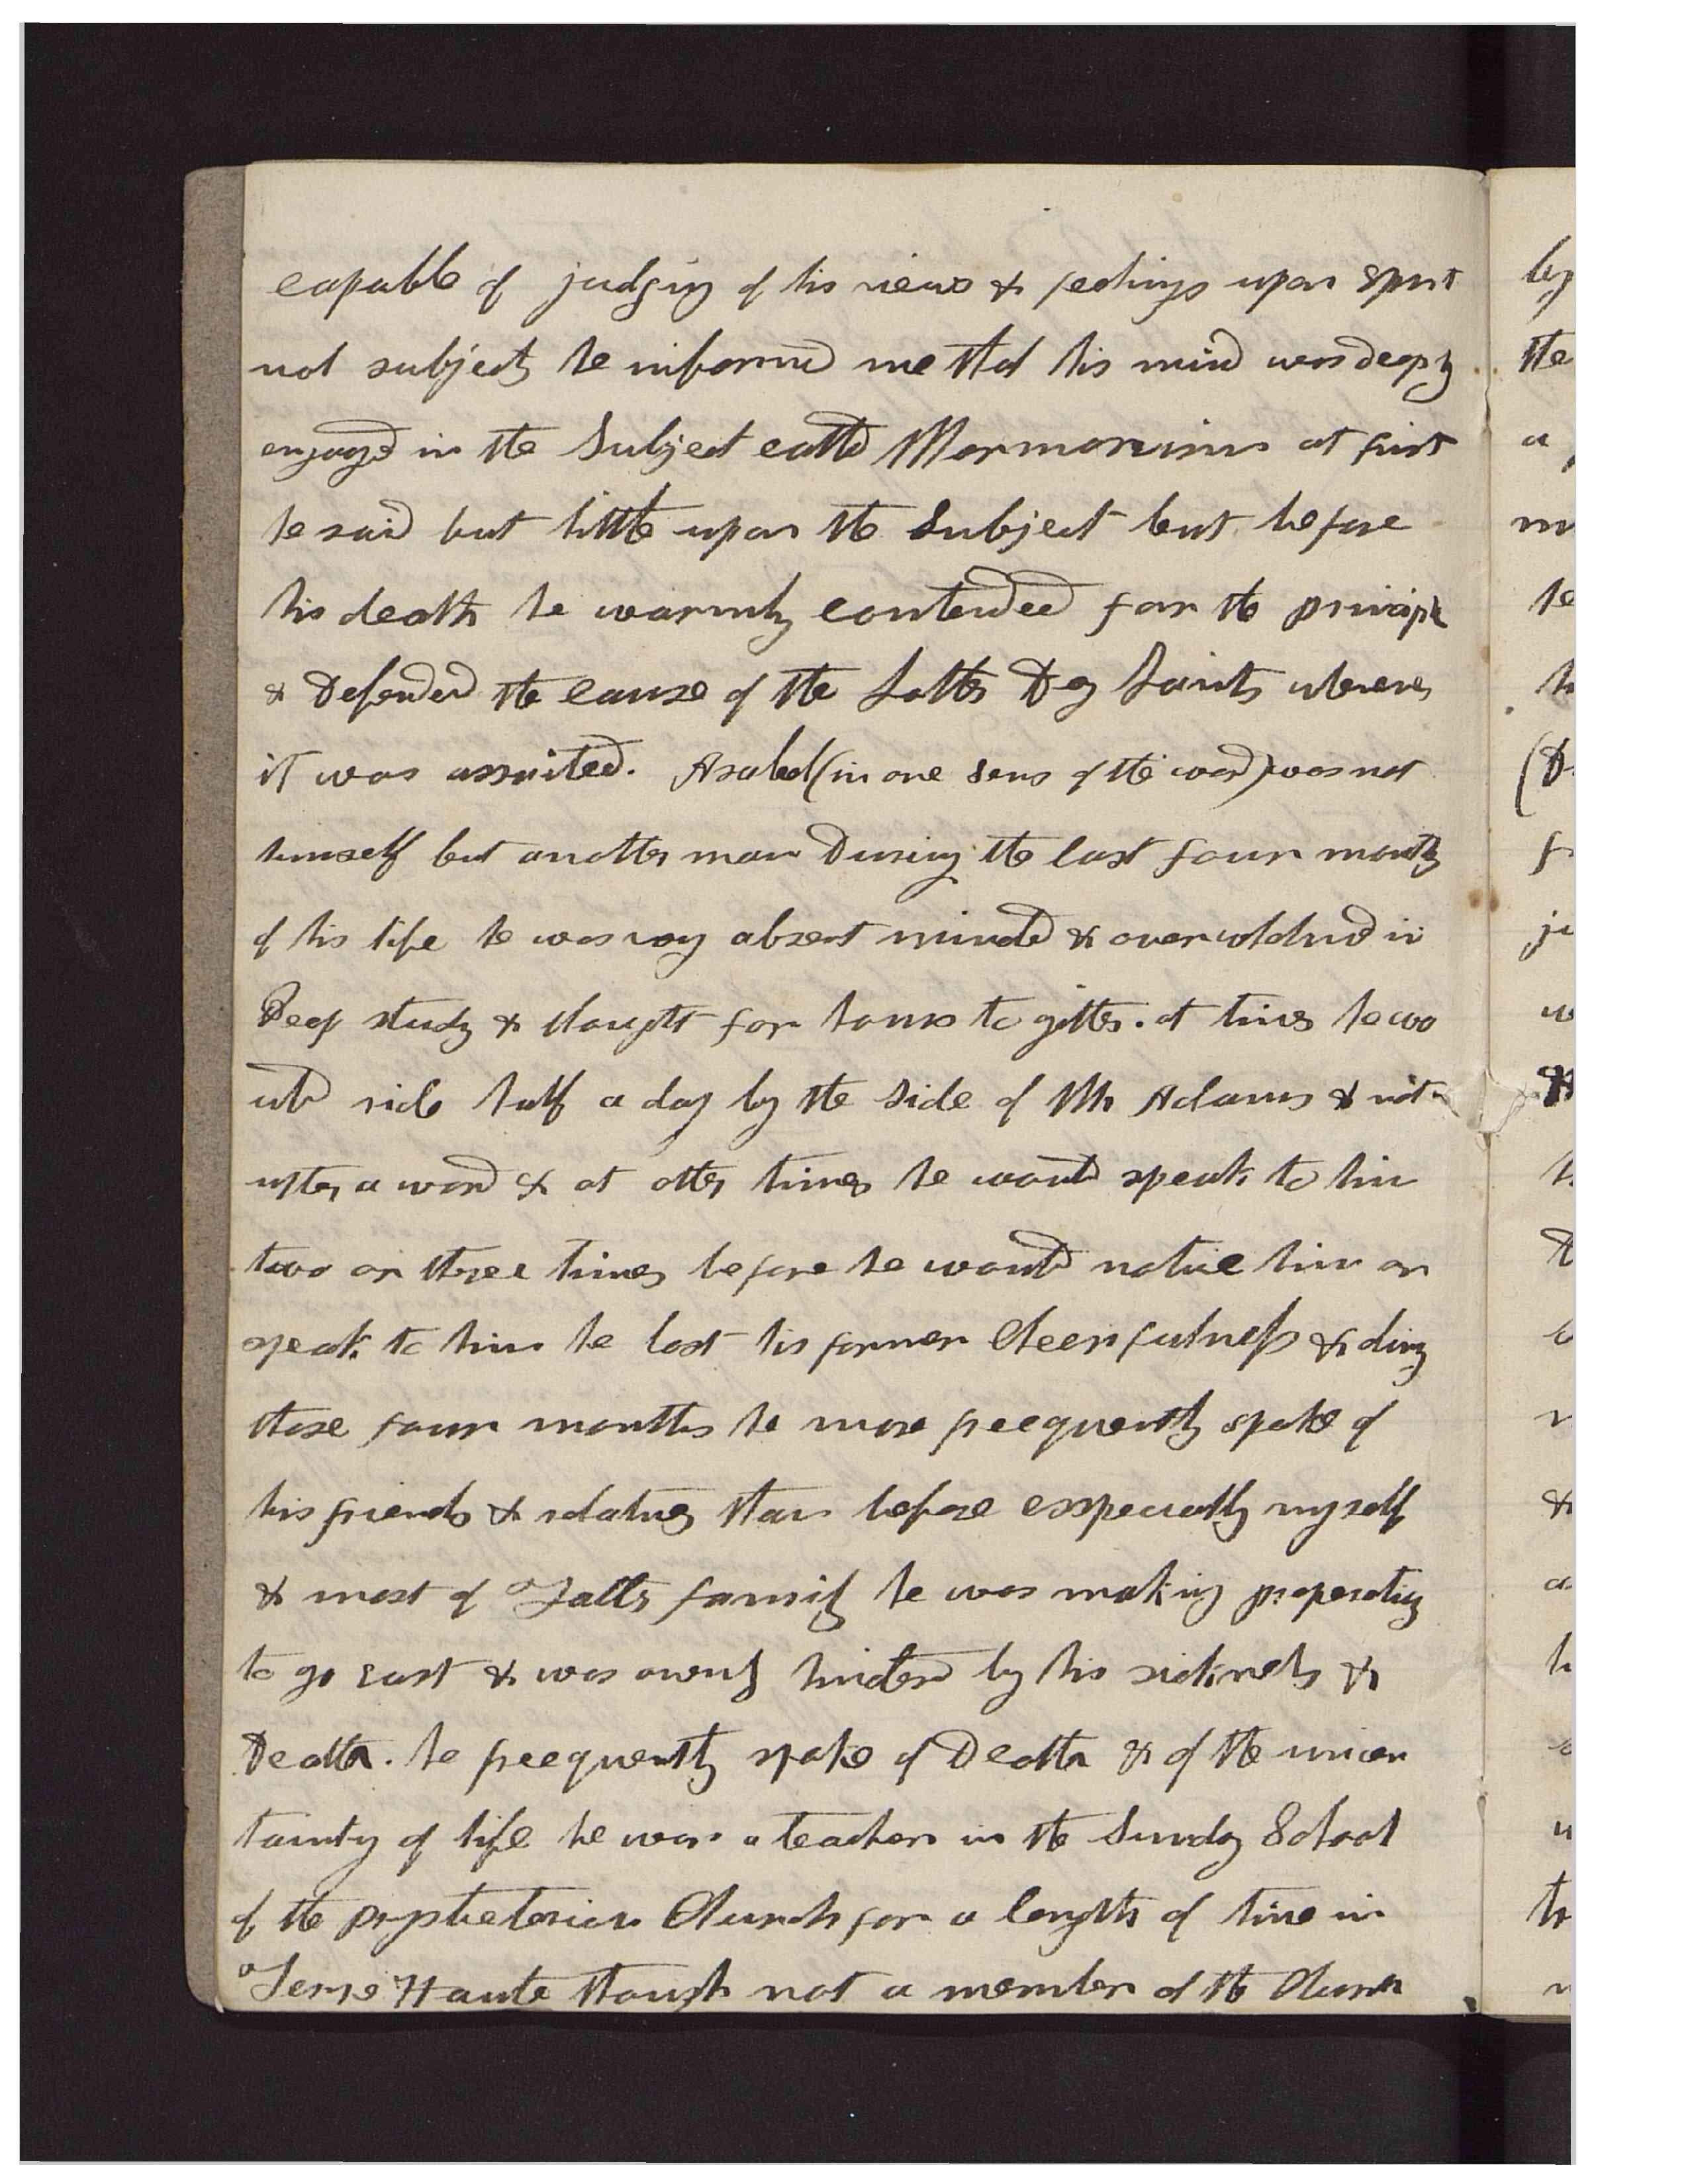 capable of judging of his views & feelings upon spirit
ual subjects he informed me that his mind was deeply
engaged in the Subject called Mormonism at first
he said but little upon the Subject but before
his death he warmly contended for the principle
& Defended the cause of the Latter Day Saints whenever
it was assaited. Asahel (in one sens of the word) was not
himself but another man During the last four months
of his life he was very absent minded & overwhelmed in
Deep study & thought for hours to gether. at times he wo
uld ride half a day by the side of Mr Adams & not
utter a word & at other times he would speak to him
two or three times before he would notice him or
speak to him he lost his former Cheerfulness & during
those four months he more freequently spoke of
his friends & relatives than before esspecially myself
& most of Fathers family he was making preperations
to go east & was ownly hindered by his sickness &
Death. he freequently spoke of Death & of the uncer
tainty of life he was a teacher in the Sunday School
of the prysbeterian Church for a length of time in
Terre Haute though not a member of the Church
by
the
a
m
he
h
(D
f
je
w
h
D
r
&
a
h
u
tr